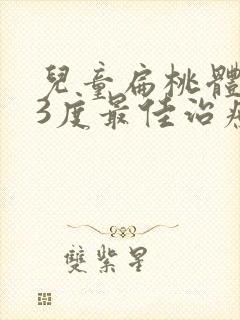 兒童扁桃體
3度最佳治
雙紫星